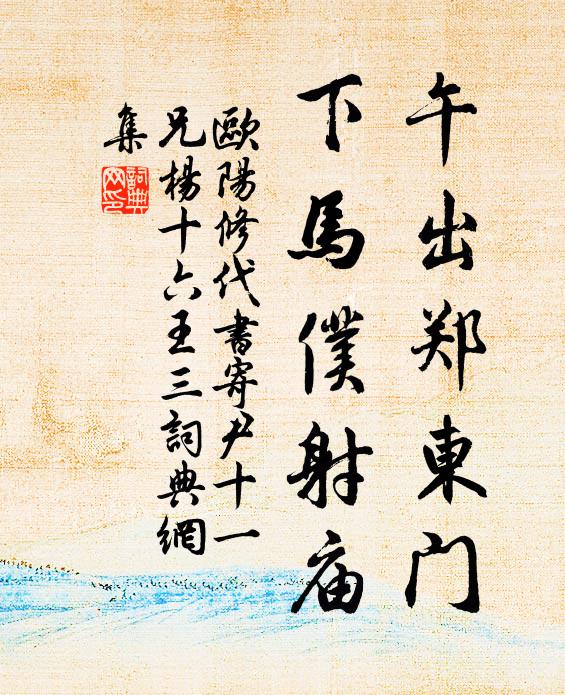 午出郑東門
下馬僕射庙
歐陽修代書寄尹十一
兄楊十六王三詞典網
集
詞典
网印